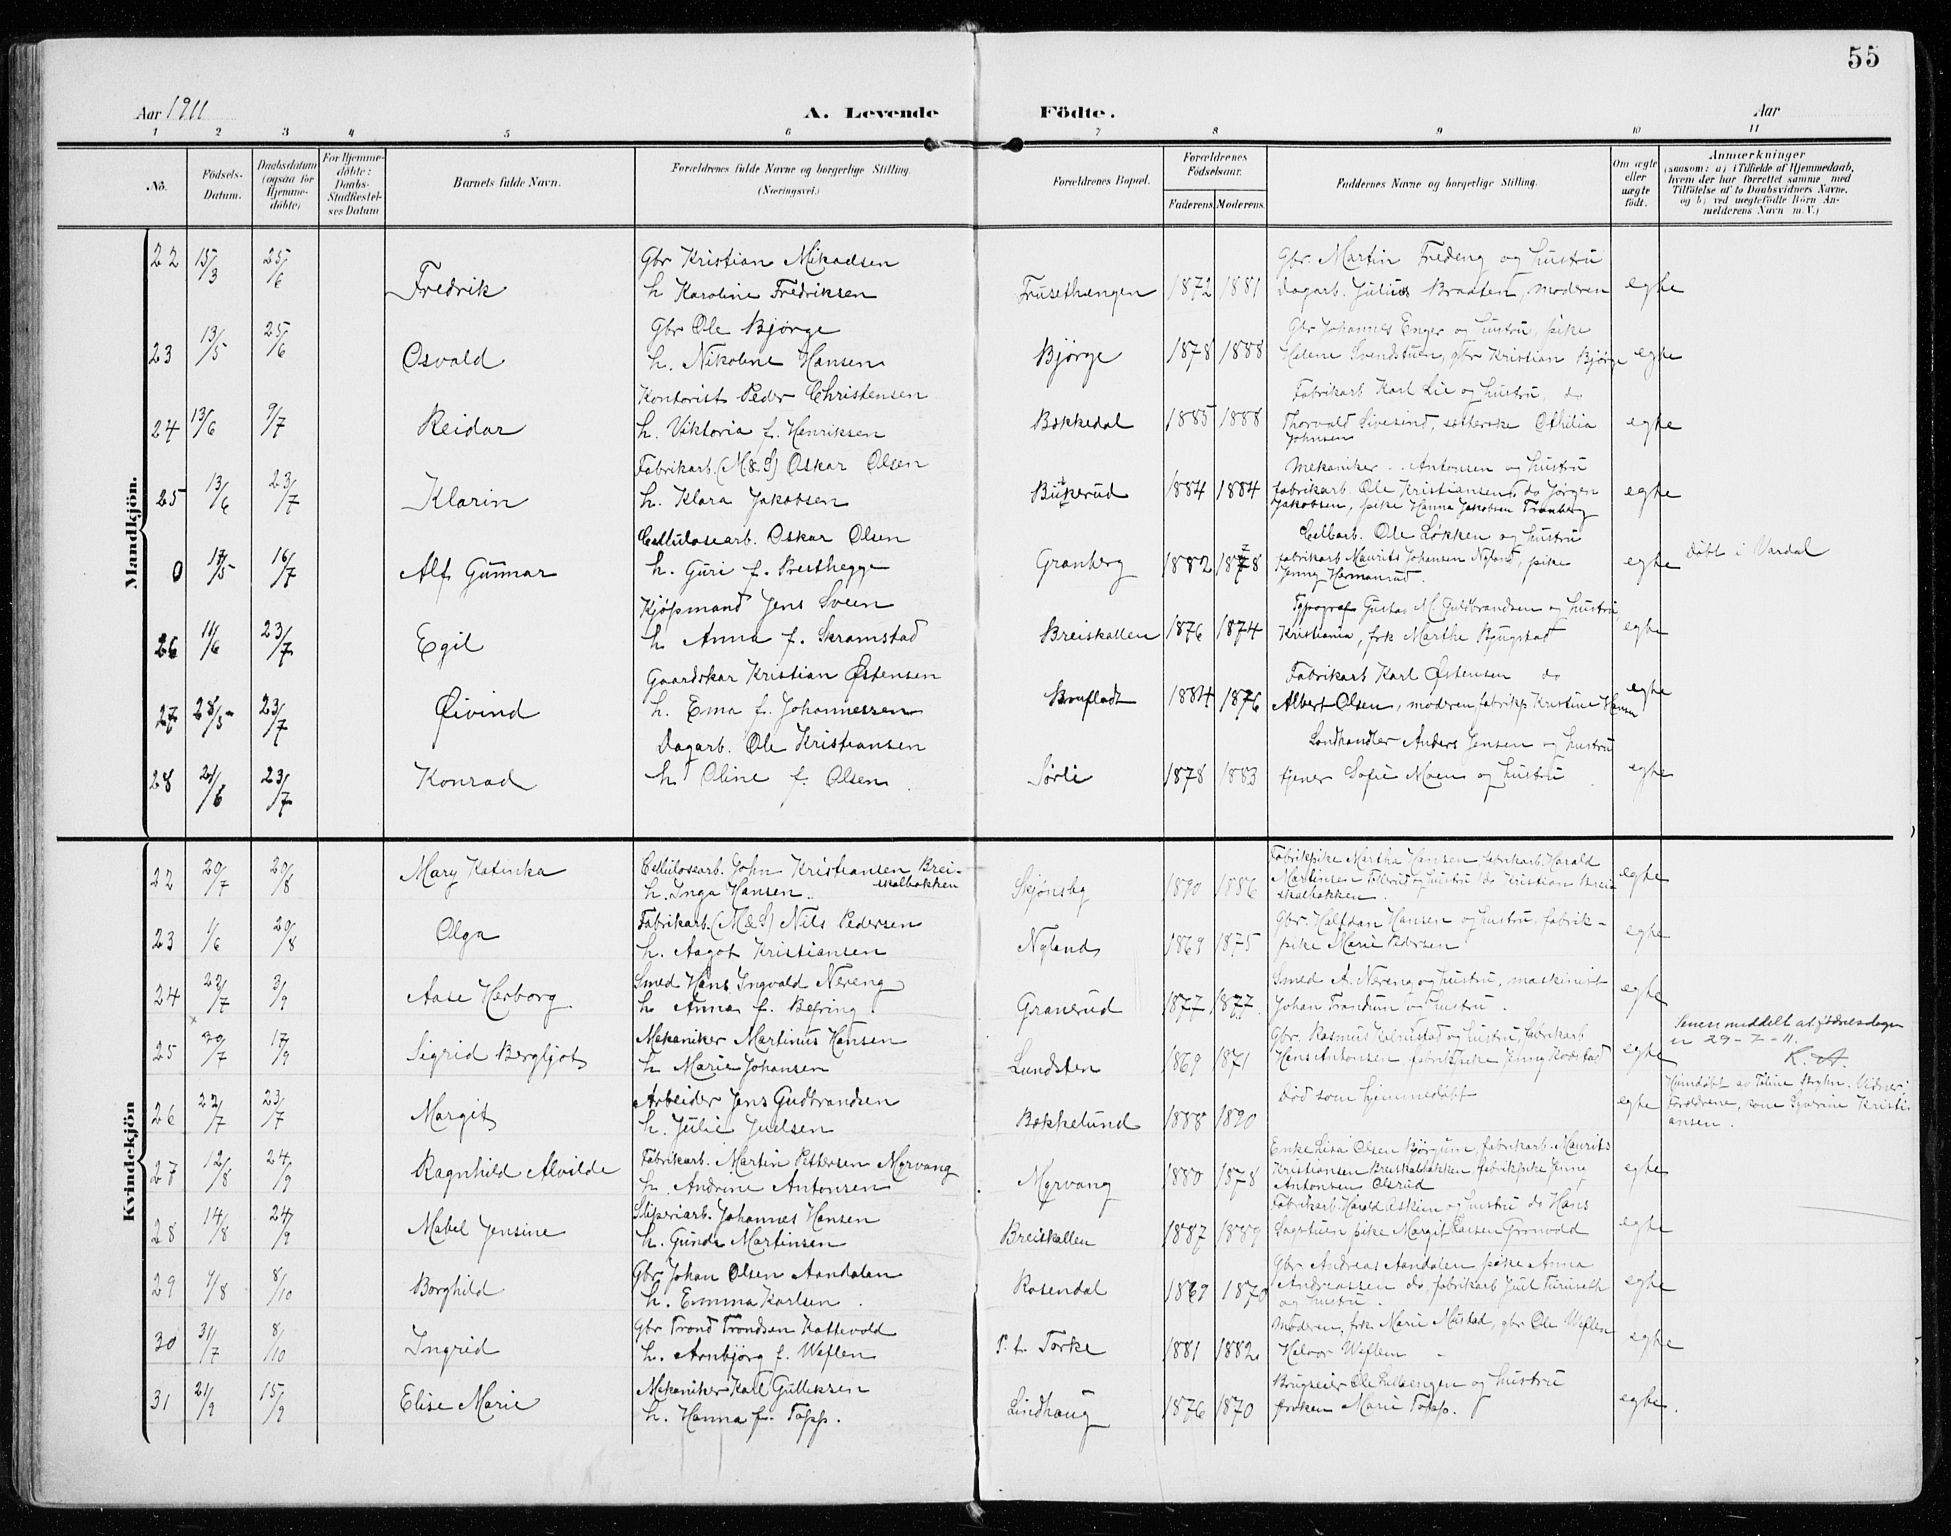 55
Aar 1911
A. Levende Födte.
Aar
1 2 3 4 5 6 7 8 9 10 11
No.
Födsels-Datum.
Daabsdatum (ogsaa for Hjemme-döbte)
For Hjemme-döbte: Daabs-Stadfæstelses Datum
Barnets fulde Navn.
Forældrenes fulde Navne og borgerlige Stilling. (Næringsvei.)
Forældrenes Bopæl.
Forældrenes Födselsaar.
Faderens. Moderens.
Faddernes Navne og borgerlige Stilling.
Om ægte eller uægte födt.
Anmærkninger
(saasom: a) i Tilfælde af Hjemmedaab, hvem der har forrettet samme, med Tilföielse af to Daabsvidners Navne, og b) ved uægtefödte Börn Anmelderens Navn m. V.)
Mandkjön.
22 15/3 25/6 Fredrik
Gbr Kristian Mikadsen
h Karoline Fredriksen
Frusethængen 1872 1881
Gbr. Martin Fredeng og hustru
Dagarb. Julius Braaten, moderen
egte
23 13/5 25/6 Osvald
Gbr Ole Bjørge
h. Nikoline Hansen
Bjørge 1878 1888
Gbr Johannes Enger og hustru, pike
Helene Svendstuen, gbr Kristian Bjørge
egte
24 13/6 9/7 Reidar
Kontorist Peder Christensen
h. Viktoria f. Henriksen
Bakkedal 1885 1888
Fabrikarb Karl Lie og hustru, do
Thorvald Sivesind, søsterske Othilia
Johnsen
egte
25 13/6 23/7 Klarin
Fabrikarb. (M&S) Oskar Olsen
h. Klara Jakobsen
Bukerud 1884 1884
Mekaniker Antonsen og hustru
fabrikarb. Ole Kristiansen, do Jørgen
Jakobsen, pike Hanna Jakobsen Tranberg
egte
0 17/5 16/7 Alf Gunnar
Cellulosearb. Oskar Olsen
h. Guri f. Presthegge
Granberg 1882 1878
Cellarb. Ole Løkken og hustru
fabrikarb Maurits Johansen Nyland, pike
Jenny Hermanrud.
egte
Døbt i Vardal
26 11/6 23/7 Egil
Kjøpmand Jens Sveen
h Anna f. Skramstad
Breiskallen 1876 1874
Typograf Gustav M. Guldbrandsen og hustru,
Kristiania, frk Marthe Bjugstad
egte
27 28/5 23/7 Øivind
Gaardskar Kristian Østensen
h. Ema f. Johannessen
Brufladt 1884 1876
Fabrikarb Karl Østensen do
Albert Olsen, moderen fabrikp Kristine Hansen
egte
28 21/6 23/7 Konrad
Dagarb. Ole Kristiansen
h Oline f. Olsen
Sørli 1878 1883
Landhandler Anders Jensen og hustru
tjener Sofie Moen og hustru
egte
Kvindekjön
22 20/7 20/8 Mary Katinka
Cellulosearb. John Kristiansen Breiskalbakken
h. Inga Hansen.
Skjønsby 1890 1886
Fabrikpike Martha Hansen, fabrikarb. Harald
Martinsen og hustru do Kristian Breiskalbakken.
egte
23 1/6 20/8 Olga
Fabrikarb. (M&S) Nils Pedersen
h. Aagot Kristiansen
Nyland 1869 1875
Gbr. Halfdan Hansen og hustru, fabrikpike Marie Pedersen
egte
24 22/7 3/9 Aase Herborg
Smed Hans Ingvald Nereng
h Anna f. Befring
Granerud 1877 1877
Smed A. Nereng og hustru, maskinist
Johan Trandum og hustru.
egte
25 29/7 17/9 Sigrid Bergljot
Mekaniker Martinus Hansen
h Marie Johansen
Lundsten 1869 1871
Gbr. Rasmus og hustru, fabrikarb
Hans Antonsen, fabrikpike Jenny
egte
Senere meddelt at fødselsdagen
er 29-7-11.
K. A.
26 22/7 23/7 Margit
Arbeider Jens Gudbrandsen
h. Julie Juelsen
Bakkelund 1888 1890
Død som hjemmedøbt
egte
Hjemdøbt av Vidner:
Forældrene, som Kristiansen.
27 12/8 24/9 Ragnhild Alvilde
Fabrikarb. Martin Pettersen Myrvang
h. Andrine Antonsen
Myrvang 1880 1878
Enke Lisa Olsen, fabrikarb. Maurits
Kristiansen Breiskalbakken, fabrikpike Jenny
Antonsen Olsrud
egte
28 14/8 24/9 Mabel Jensine
Sliperiarb. Johannes Hansen
h. Gunda Martinsen
Breiskallen 1887 1889
Fabrikarb. Harald Askeim og hustru do Hans
Sagstuen pike Margit Larsen Grønvold
egte
29 9/8 8/10 Borghild
Gbr Johan Olsen Aandalen
h. Emma Karlsen.
Rosendal 1869 1870
Gbr. Andreas Aandalen pike Anna
Andreassen do, fabrikarb Juul
og hustru.
egte
30 31/7 8/10 Ingrid
Gbr Trond Trondsen Kattevold
h. Arnbjørg f. Weflen
P.t. Torke 1881 1882
Moderen, frk. Marie Mustad, gbr Ole Weflen
Halvor Weflen
egte
31 21/9 15/9 Elise Marie
Mekaniker Karl Gulliksen
h. Hanna f. Topp.
Lindhaug 1876 1870
Brugseier Ole Lilleengen og hustru
frøken Marie Topp.
egte.